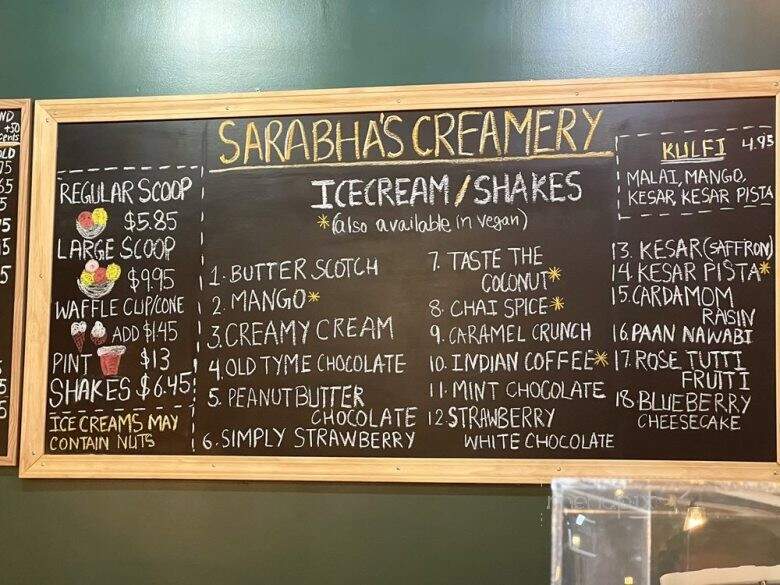 ND
+50
cents
OLD
75
65
5
75
15
5
5
5
5
SARABHA'S CREAMERY
ICECREAM/SHAKES
*(also available in vegan)
REGULAR SCOOP
$5.85
LARGE SCOOP
$9.95
WAFFLE CUP/CONE
ADD $1.45
PINT $13
SHAKES $6.45
ICE CREAMS MAY
CONTAIN NUTS
1. BUTTER SCOTCH
2. MANGO*
3. CREAMY CREAM
4. OLD TYME CHOCOLATE
5. PEANUT BUTTER
CHOCOLATE
6. SIMPLY STRAWBERRY
7. TASTE THE
COCONUT*
8. CHAI SPICE*
9. CARAMEL CRUNCH
10. INDIAN COFFEE*
11. MINT CHOCOLATE
12. STRAWBERRY
WHITE CHOCOLATE
KULFI 4.95
MALAI, MANGO,
KESAR, KESAR PISTA
13. KESAR (SAFFRON)
14. KESAR PISTA*
15. CARDAMOM
RAISIN
16. PAAN NAWABI
17. ROSE TUTTI
FRUITTI
18. BLUEBERRY
CHEESECAKE